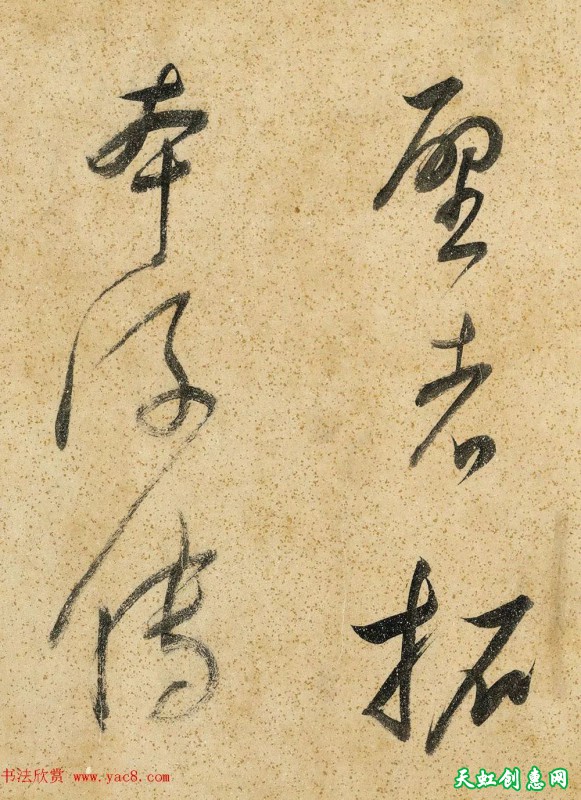 者拓
本得傳
书法欣赏 www.yac8.com
天虹创惠网